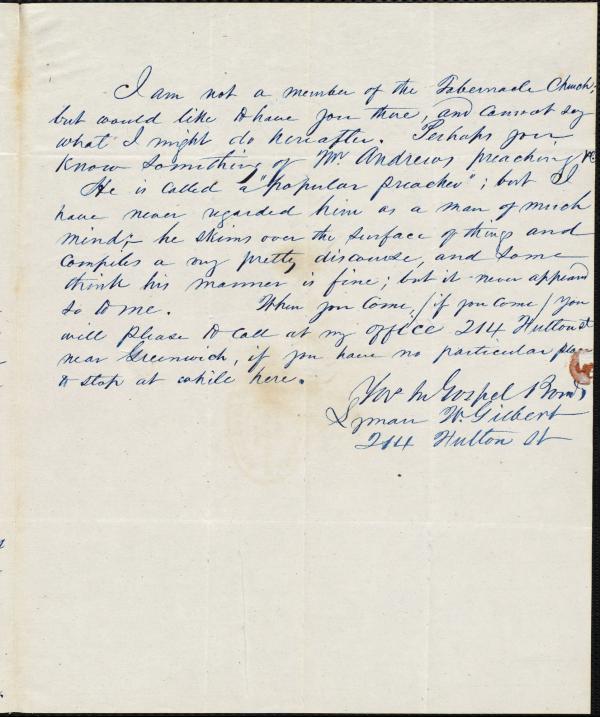 I am not a member of the Tabernacle Church,
but would like to have you there, and cannot say
what I might do hereafter. Perhaps you
know something of Mr Andrews preaching &c
He is called a "popular preacher"; but I
have never regarded him as a man of much
mind;- he skims over the surface of things and
compiles a very pretty discourse, and some
think his manner is fine; but it never appeared
so to me. When you come, (if you come) you
will please to call at my office 214 Fulton st
near Greenwich, if you have no particular place
to stop at while here.
Yos in Gospel Bonds
Lyman W. Gilbert
214 Fulton St